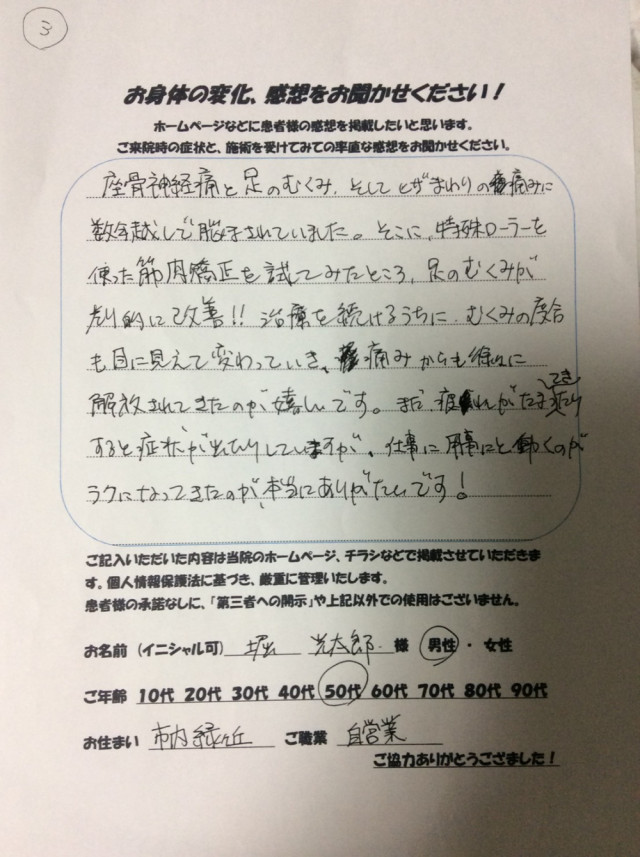 3
お身体の変化、感想をお聞かせください!
ホームページなどに患者様の感想を掲載したいと思います。
ご来院時の症状と、施術を受けてみての率直な感想をお聞かせください。
座骨神経痛と足のむくみ、そしてヒザまわりの痛みに
数年越しで脳まされていました。そこに、特殊ローラーを
使った筋肉矯正を試してみたところ、足のむくみが
劇的に改善!!治療を続けるうちに、むくみの度合
も目に見えて変わっていき、痛みからも徐々に
解放されてきたのが嬉しいです。まだ、疲れがたまってきたり
すると症状が出たりしていますが、仕事に用事にと動くのが
ラクになってきたのが、本当にありがたいです!
ご記入いただいた内容は当院のホームページ、チラシなどで掲載させていただきま
す。個人情報保護法に基づき、厳重に管理いたします。
患者様の承諾なしに、「第三者への開示」や上記以外での使用はございません。
お名前(イニシャル可) 堀 光太郎 様 男性・女性
ご年齢 10代 20代 30代 40代 50代 60代 70代 80代 90代
お住まい 市内緑ヶ丘 ご職業 自営業
ご協力ありがとうござました!